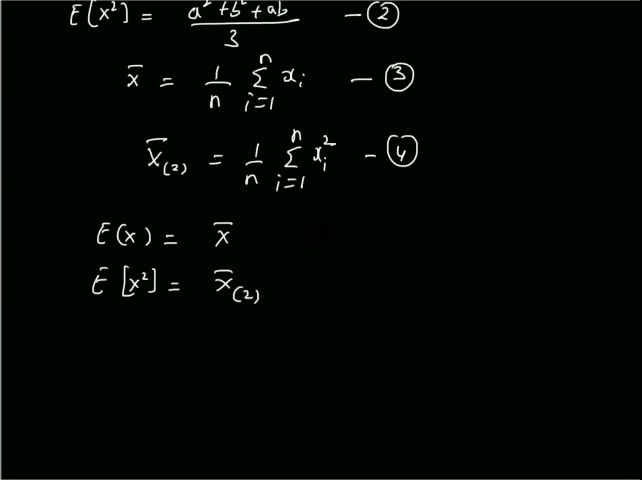 E[x²] = a²+b²+ab / 3 — ②
x̄ = 1/n Σᵢ₌₁ⁿ xᵢ — ③
x̄₍₂₎ = 1/n Σᵢ₌₁ⁿ xᵢ² — ④
E(x) = x̄
E[x²] = x̄₍₂₎